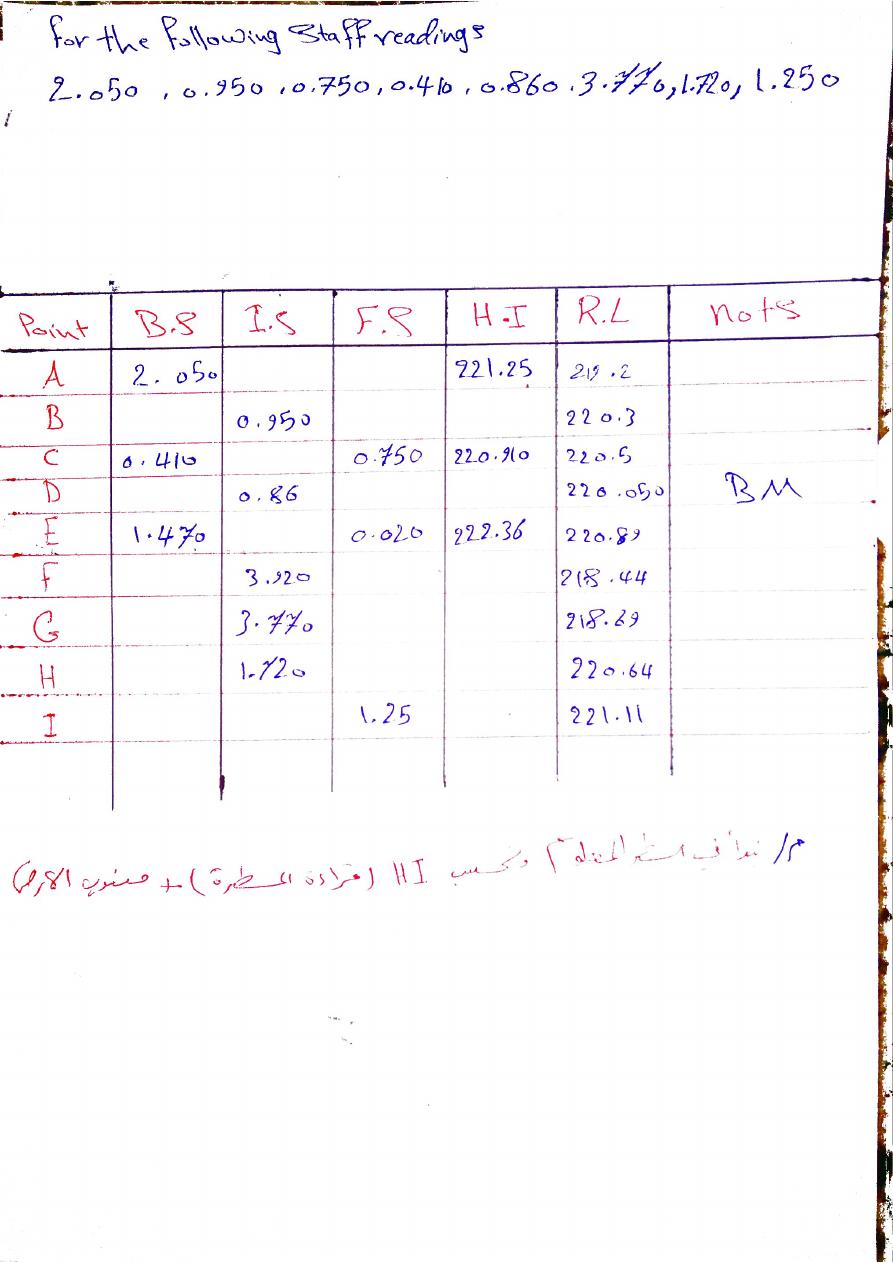 for the following Staff readings
2.050 , 0.950 , 0.750 , 0.410 , 0.860 . 3.770 , 1.720 , 1.250
Point B.S I.S F.S H.I R.L nots
A 2.050 221.25 219.2
B 0.950 220.3
C 0.410 0.750 220.910 220.5
D 0.86 220.050 BM
E 1.470 0.020 222.36 220.89
F 3.920 218.44
G 3.770 218.69
H 1.720 220.64
I 1.25 221.11
م/ ونحسب HI (قراءة المسطرة) + منسوب الارض